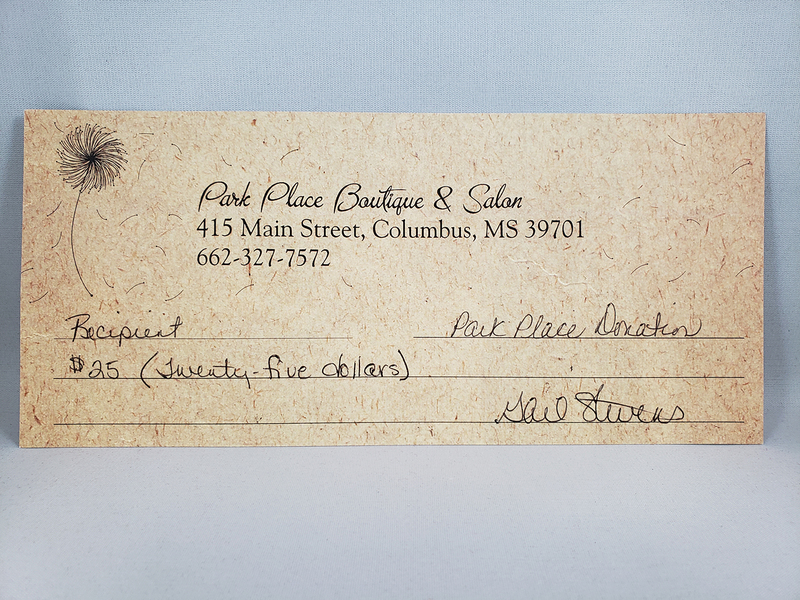 Park Place Boutique & Salon
415 Main Street, Columbus, MS 39701
662-327-7572
Recipient Park Place Donation
$25 (Twenty-five dollars)
Gail Stevens